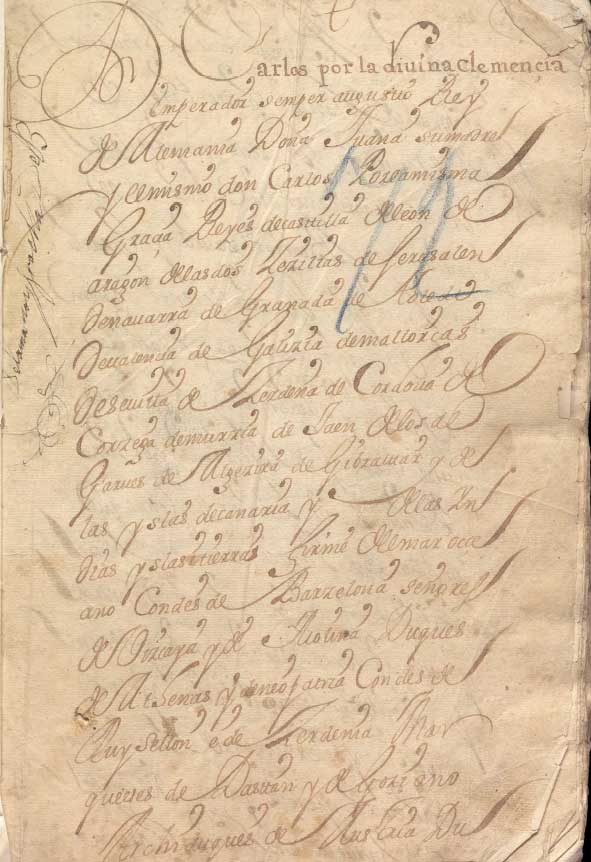 Carlos por la diuina clemencia
Emperador semper augusto Rey
de Alemania Doña Juana sumadre
y elmismo don Carlos Porlamisma
Gracia Reyes decastilla deleon de
aragon delasdos Zezilias de Jerusalen
denauarra de Granada de Toledo
deualencia de Galizia demallorcas
deseuilla de Zerdeña de Cordoua de
Corzega demurzia de Jaen delos al
Garues de Algezira de Gibraltar y de
las yslas decanaria y delas Yn
dias yslasitierra firme delmar oce
ano Condes de Barzelona señores
de Vizcaya y de Molina Duques
de Athenas y deneopatria Condes de
Ruysellon e de Zerdenia Mar
queses de Oristan y de Gorziano
Archiduques de Austria Du